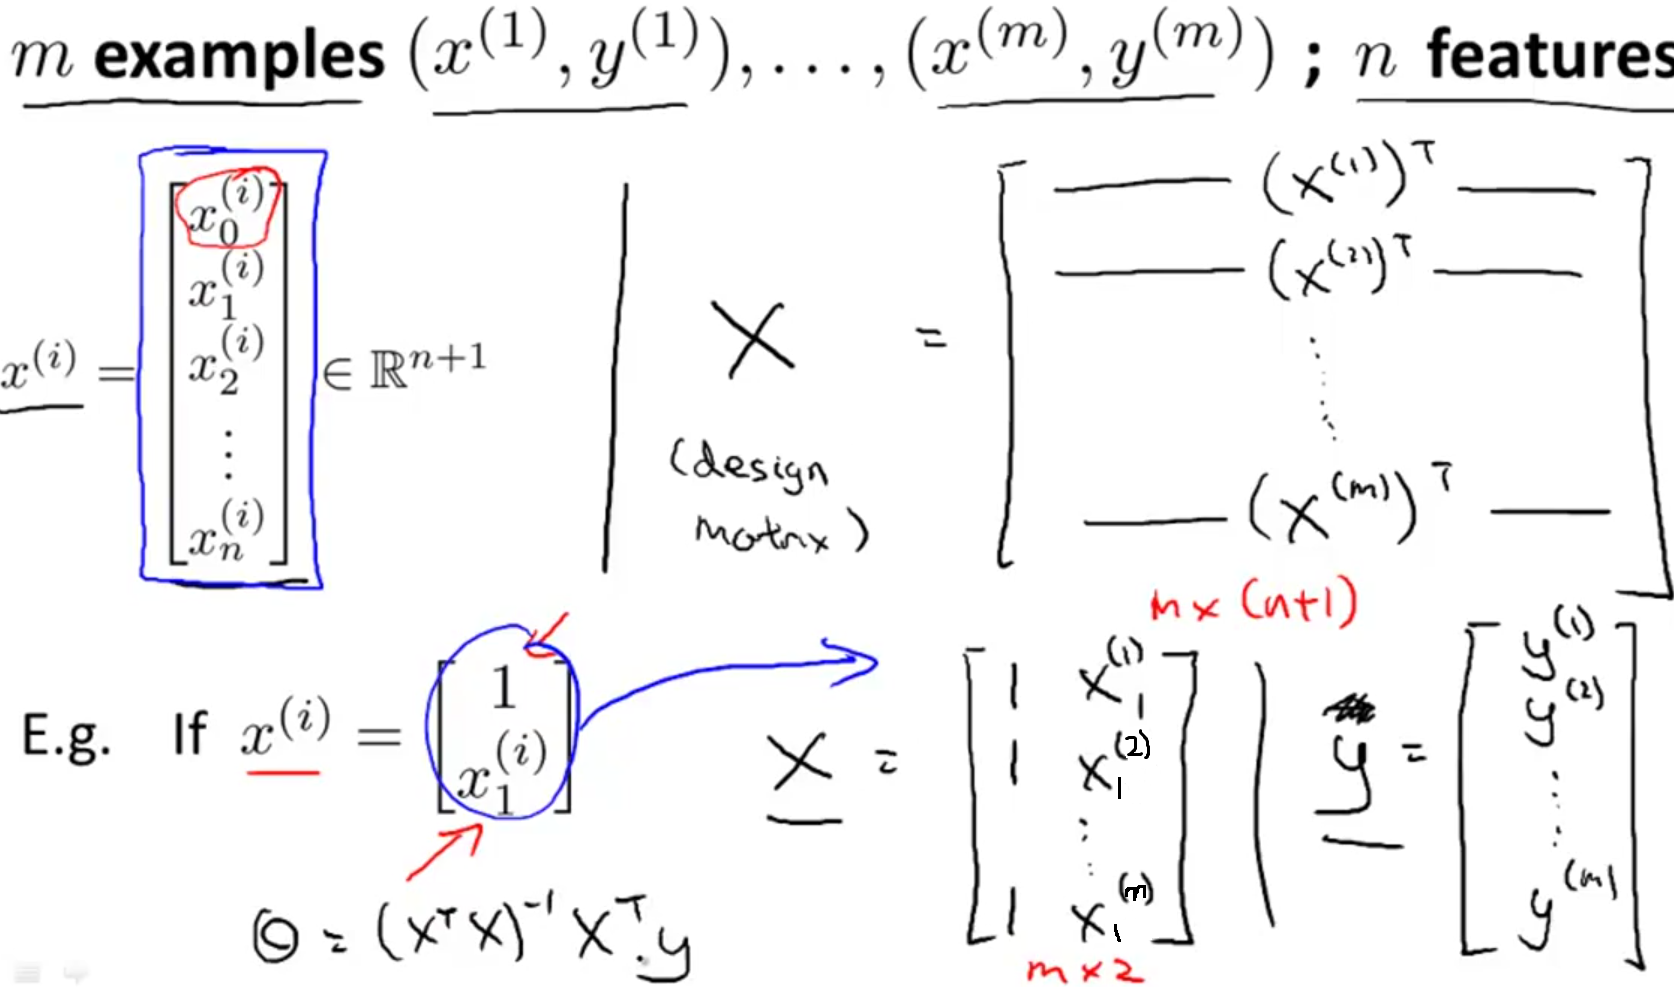 m examples (x^(1), y^(1)), ..., (x^(m), y^(m)) ; n features
x^(i) = [x_0^(i) x_1^(i) x_2^(i) ⋮ x_n^(i)] ∈ ℝ^{n+1}
X = [— (x^(1))^T — — (x^(2))^T — ⋮ — (x^(m))^T —]
(design
matrix)
m x (n+1)
E.g. If x^(i) = [1 x_1^(i)]
X = [1 x_1^(1) 1 x_1^(2) ⋮ 1 x_1^(m)]
m x 2
y = [y^(1) y^(2) ⋮ y^(m)]
Θ = (X^T X)^-1 X^T y